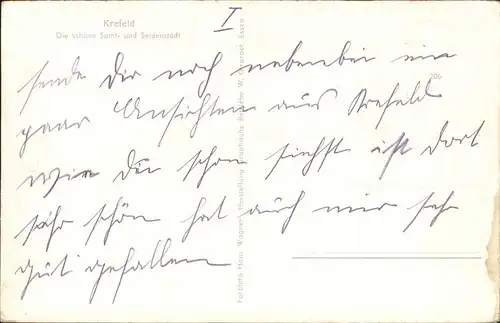 I
Krefeld
Die schöne Samt- und Seidenstadt
sende Dir noch nebenbei ein
206
paar Ansichten aus Krefeld
wie du schon siehst ist dort
sehr schön hat auch mir sehr
gut gefallen